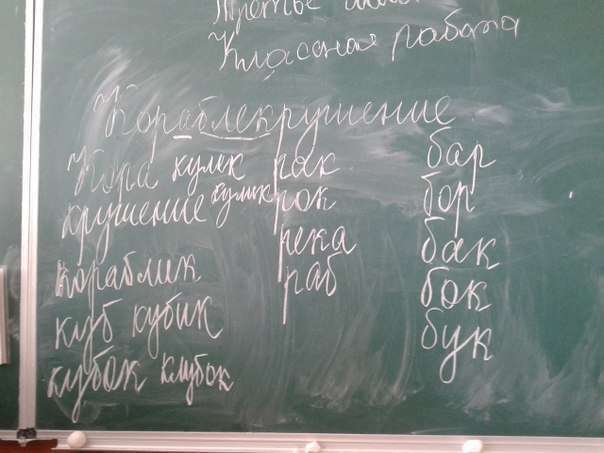 Третье мая
Классная работа
Кораблекрушение
Кора кулек рак бар
крушение кулик рок бор
река бак
кораблик раб бок
куб кубик бук
кубок клубок